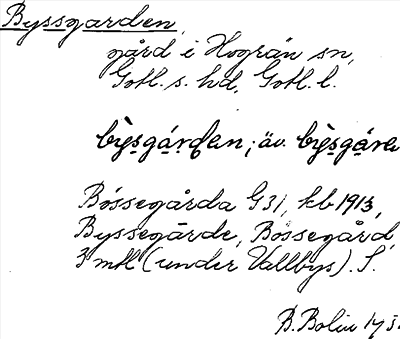 Byssgården,
gård i Hogrän sn,
Gotl. s. hd, Gotl. l.
bỳsgárđen; äv. bỳsgára
Bóssegårda G31, kb 1913,
Byssegārde, Bóssegård,
3 mtl (under Vallbys). S.
B. Bolin 193